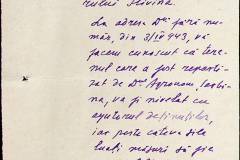 rului Slivina
La adresa Dv. fără nu-
măr, din 3/IV 943, vă
facem cunoscut că tere-
nul care a fost repartizat
zat de Dl Agronom Serbina,
va fi nivelat cu
ajutorul deținuților,
iar peste câteva zile
luați măsuri să fie